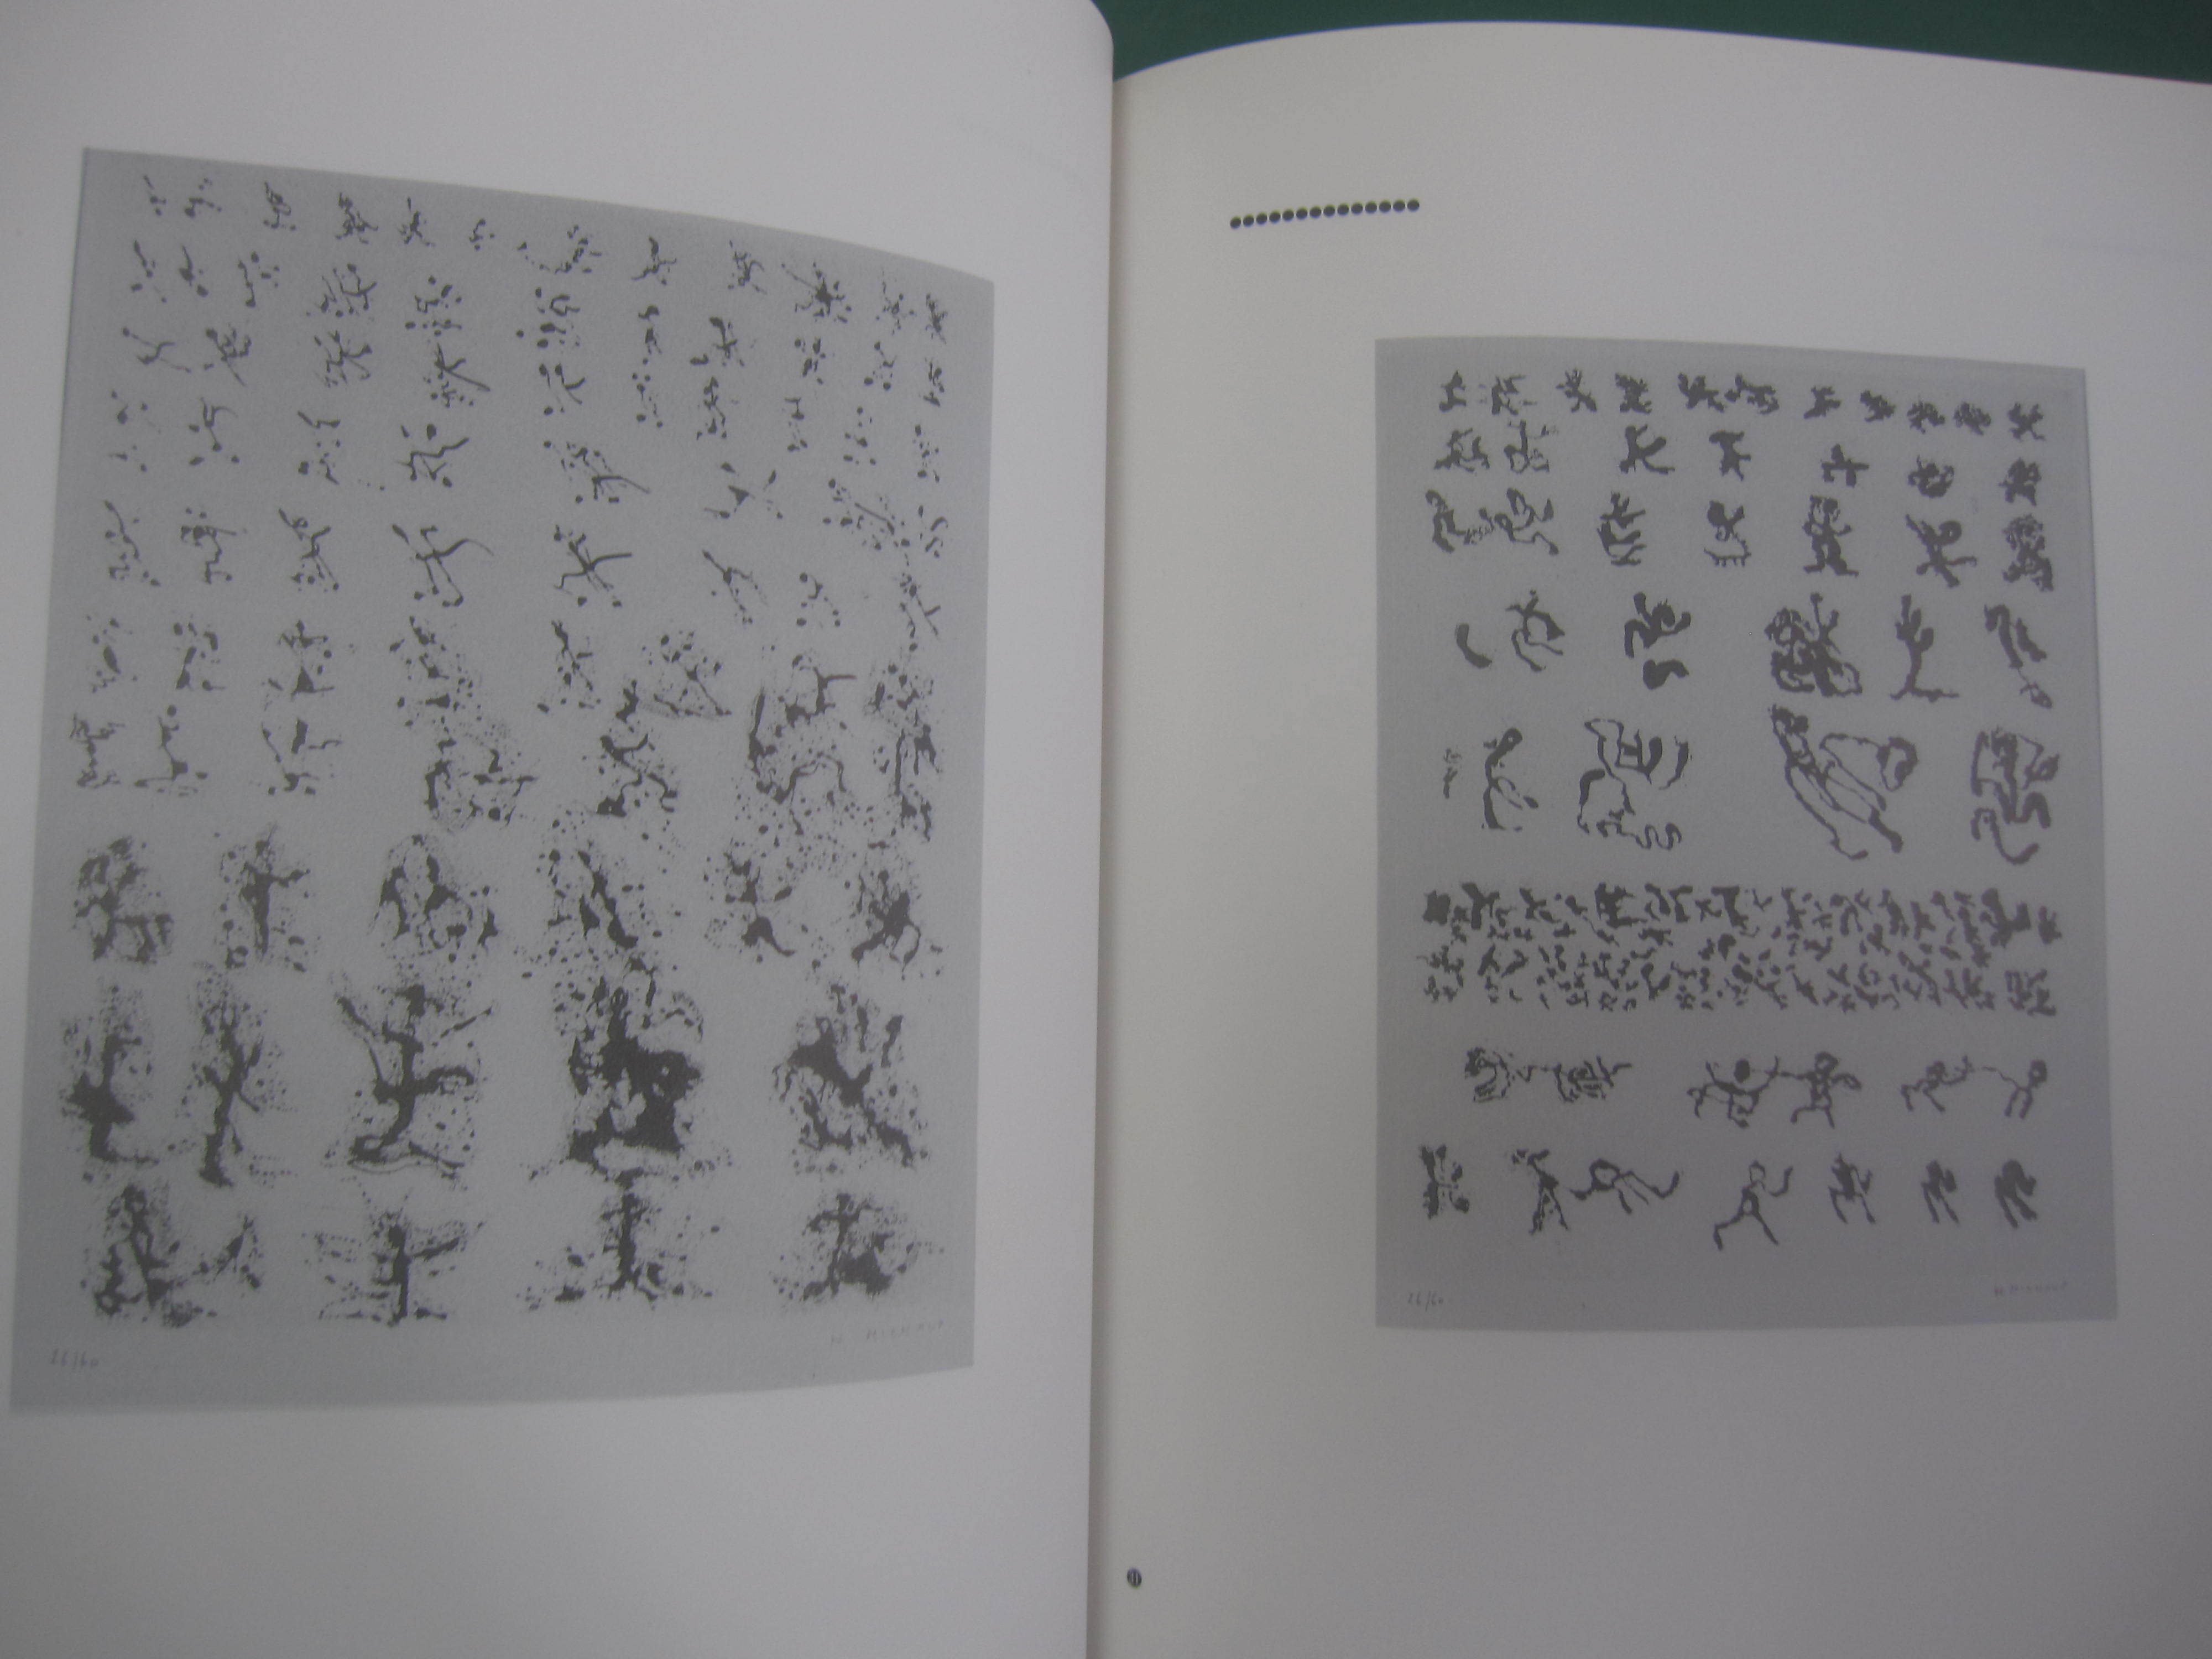 26/60
H. MICHAUX
26/60
H MICHAUX